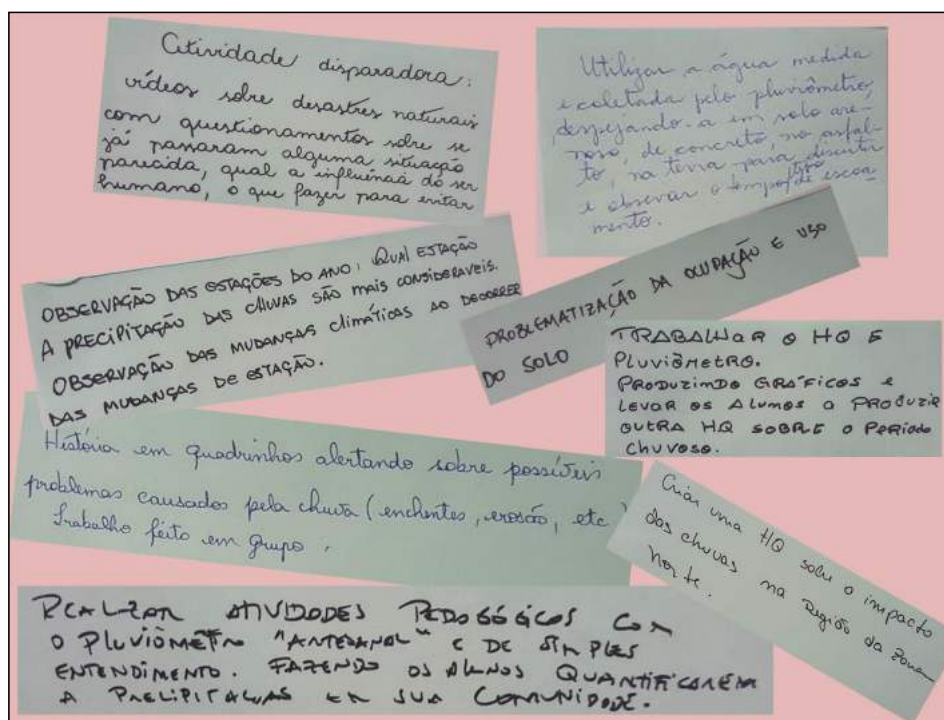 Atividade disparadora:
vídeos sobre desastres naturais
com questionamentos sobre se
já passaram alguma situação
parecida, qual a influência do ser
humano, o que fazer para evitar
Utilizar a água medida
e coletada pelo pluviômetro,
despejando-a em solo are-
noso, de concreto, no asfal-
to, na terra para discutir
e observar o tempo de escoa-
mento.
OBSERVAÇÃO DAS ESTAÇÕES DO ANO: QUAL ESTAÇÃO
A PRECIPITAÇÃO DAS CHUVAS SÃO MAIS CONSIDERAVEIS.
OBSERVAÇÃO DAS MUDANÇAS CLIMÁTICAS AO DECORRER
DAS MUDANÇAS DE ESTAÇÃO.
PROBLEMATIZAÇÃO DA OCUPAÇÃO E USO
DO SOLO
TRABALHAR O HQ E
PLUVIÔMETRO.
PRODUZINDO GRÁFICOS E
LEVAR OS ALUNOS A PRODUZIR
OUTRA HQ SOBRE O PERÍODO
CHUVOSO.
História em quadrinhos alertando sobre possíveis
problemas causados pela chuva (enchentes, erosão, etc
Trabalho feito em grupo.
Criar uma HQ sobre o impacto
das chuvas na Região da Zona
Norte.
REALIZAR ATIVIDADES PEDAGÓGICAS COM
O PLUVIÔMETRO "ARTESANAL" E DE SIMPLES
ENTENDIMENTO. FAZENDO OS ALUNOS QUANTIFICAREM
A PRECIPITAÇÃO EM SUA COMUNIDADE.